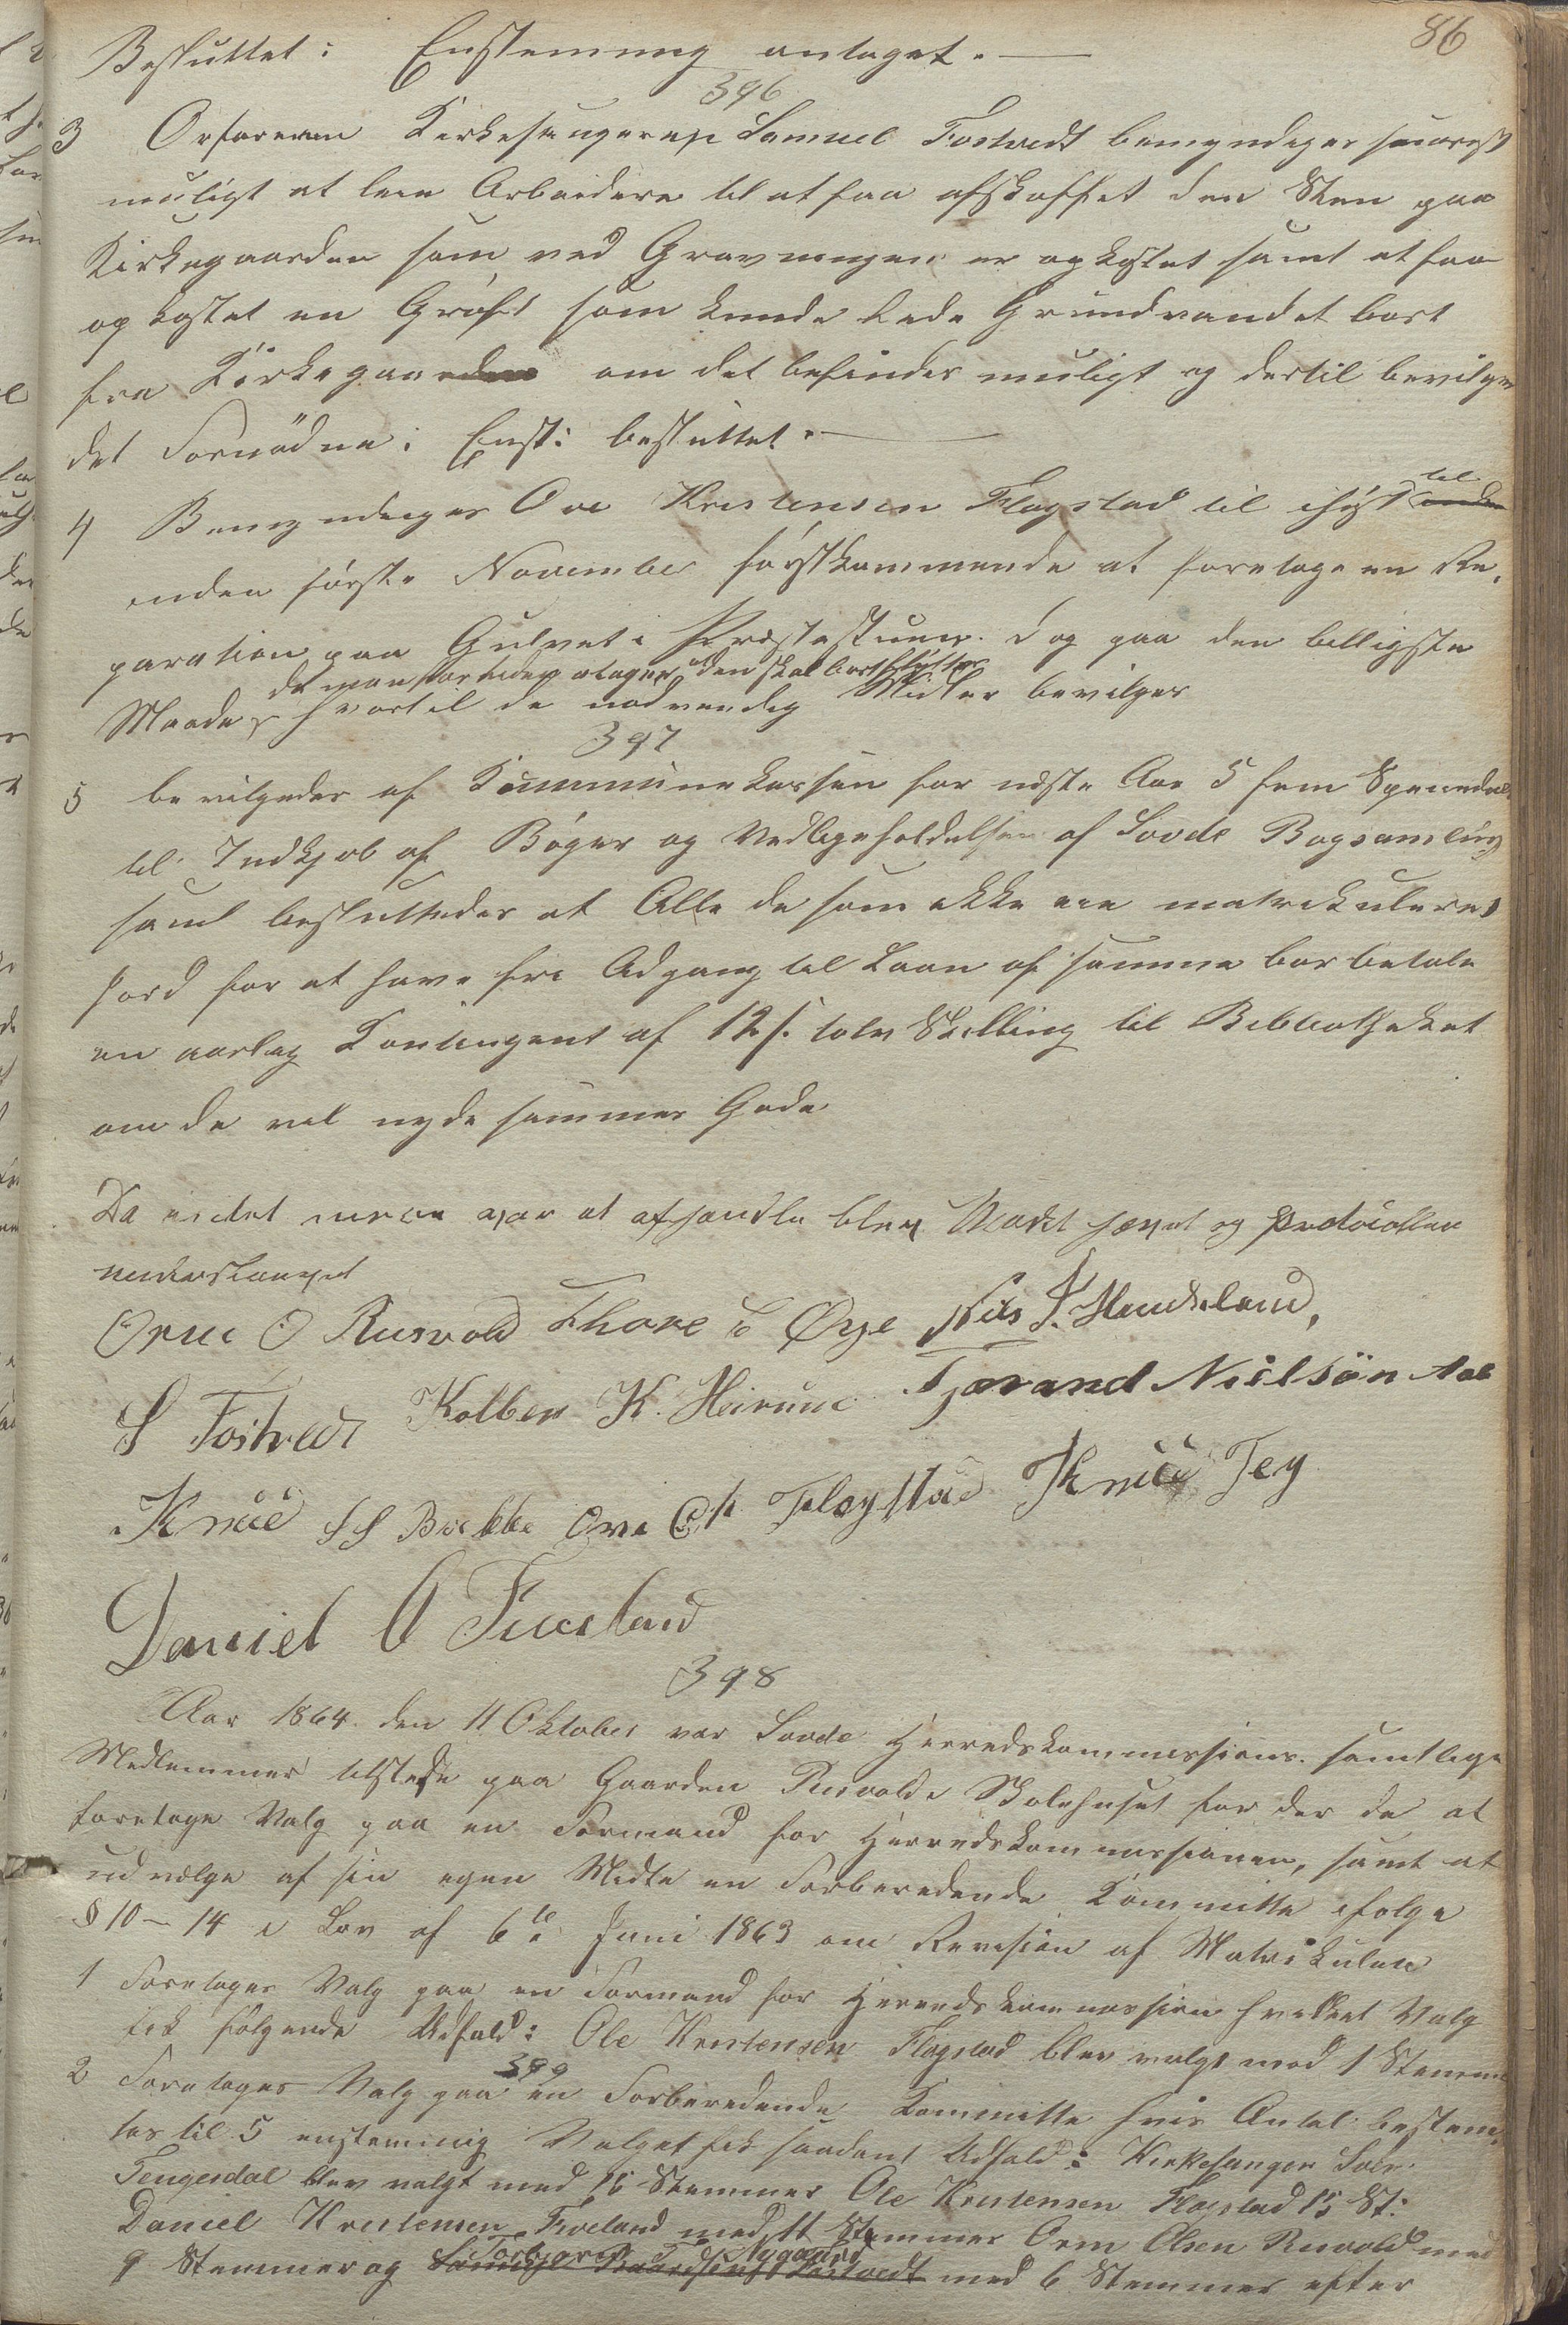 86
Besluttet: Enstemmig antaget.
396
3 Ordføreren Kirkesanger Samuel Fostvedt bemyndiges snarest
muligt at leie Arbeidere til at faa afskaffet den Sten paa
Kirkegaarden som ved Gravningen er opkastet samt at faa
opkastet en Grøft som kunde lede Grundvandet bort
fra Kirkegaarden om det befindes muligt og dertil bevilges
det Fornødne: Enst: besluttet.
til
4 Bemyndiges Ove Kristensen Flagstad til
inden første November førstkommende at foretage en Re-
paration paa Gulvet i Præstestuen. dog paa den billigste
den skal bortflyttes
Maade, hvortil de nødvendig Midler bevilges
397
5 bevilgedes af Kommunekassen for næste Aar 5 fem Speciedal
til Indkjøb af Bøger og Vedligeholdelsen af Sovde Bogsamling
samt besluttedes at Alle de som ikke eie matrikuleret
Jord for at have fri Adgang til Laan af samme bør betale
en aarlig Kontingent af 12 s. tolv Skilling til Bibliotheket
om de vil nyde sammes Gode
Da intet mere var at afhandle blev Mødet hævet og Protocollen
underskrevet
Orm O Rusvold Thore T Øye Nils J. Handeland,
S Fostvedt Kolben K. Heirune Tjærand Nielsøn Aae
Knud SS Bække Ove Ch Flagstad Knud Teg
Daniel O Fiveland
398
Aar 1864. den 11 Oktober var Sovde Herredskommissions. samtlige
Medlemmer tilstede paa Gaarden Rusvolds Skolehuset for der da at
foretage Valg paa en Formand for Herredskommissionen, samt at
udvælge af sin egen Midte en Forberedende Kommitte ifølge
§ 10–14 i Lov af 6te Juni 1863 om Revision af Matrikulen
1 Foretages Valg paa en Formand for Herredskommission hvilket Valg
fik følgende Udfald: Ole Kristensen Flagstad blev valgt med 1 Stemme
399
2 Foretages Valg paa en Forberedende Kommitte hvis Antal bestem-
tes til 5 enstemmig Valget fik saadant Udfald: Kirkesanger Søvr.
Tengesdal blev valgt med 15 Stemmer Ole Kristensen Flagstad 15 St:
Daniel Kristensen Fiveland med 11 Stemmer Orm Olsen Rusvold med
Nygaard
9 Stemmer og med 6 Stemmer efter